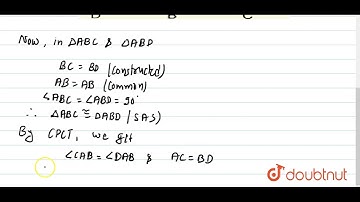 Now, in ΔABC & ΔABD
BC = BD (constructed)
AB = AB (common)
∠ABC = ∠ABD = 90°
∴ ΔABC ≅ ΔABD (SAS)
By CPCT, we get
∠CAB = ∠DAB & AC = BD
doubtnut